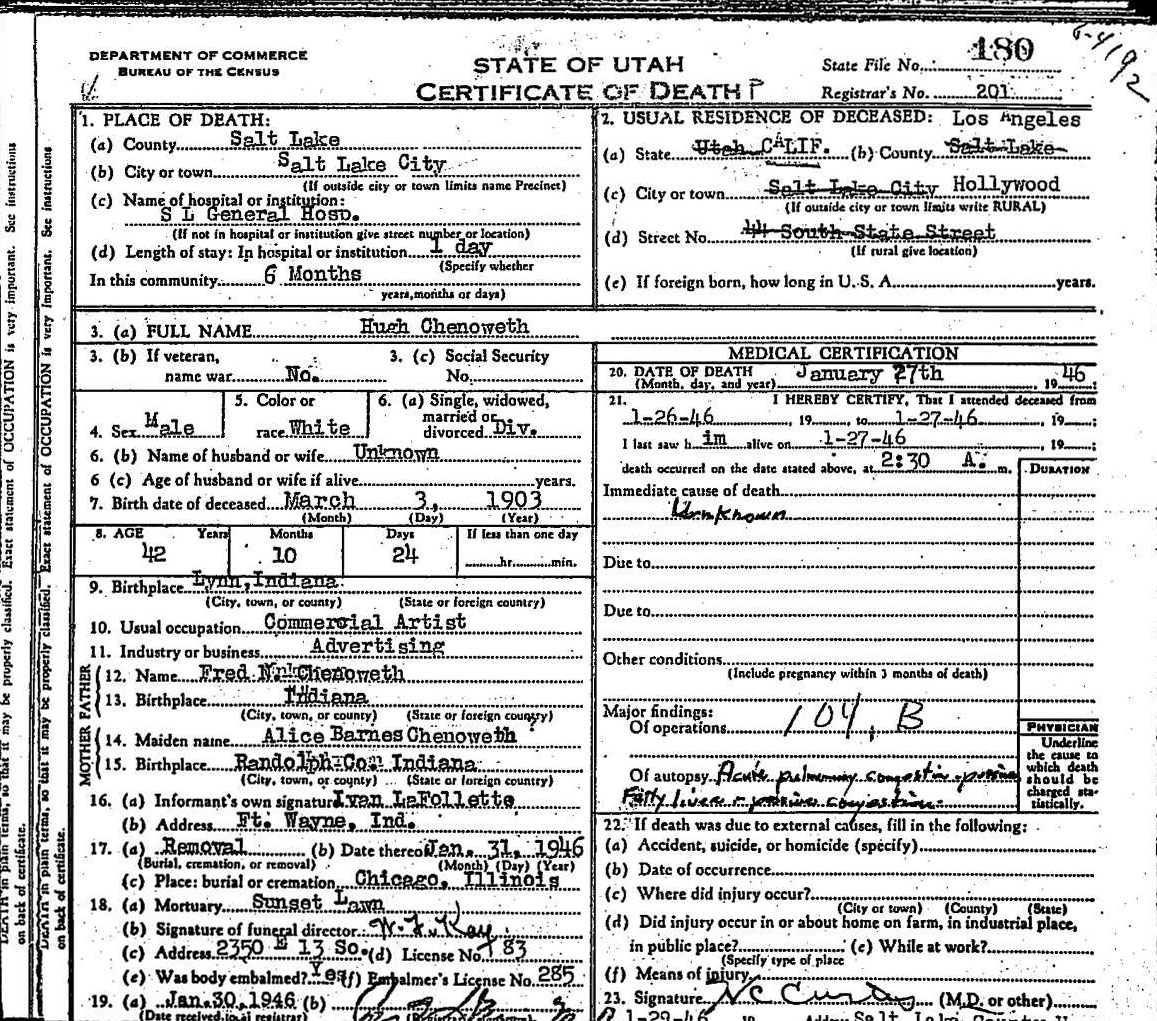 6-4192
DEPARTMENT OF COMMERCE
BUREAU OF THE CENSUS
STATE OF UTAH
CERTIFICATE OF DEATH
State File No. 180
Registrar's No. 201
1. PLACE OF DEATH:
(a) County Salt Lake
(b) City or town Salt Lake City
(If outside city or town limits name Precinct)
(c) Name of hospital or institution:
S L General Hosp.
(If not in hospital or institution give street number or location)
(d) Length of stay: In hospital or institution 1 day
(Specify whether
In this community 6 Months
years, months or days)
2. USUAL RESIDENCE OF DECEASED: Los Angeles
(a) State Utah CALIF. (b) County Salt Lake
(c) City or town Salt Lake City Hollywood
(If outside city or town limits write RURAL)
(d) Street No. 44 South State Street
(If rural give location)
(e) If foreign born, how long in U. S. A. years.
3. (a) FULL NAME Hugh Chenoweth
3. (b) If veteran, name war No.
3. (c) Social Security No.
4. Sex Male
5. Color or race White
6. (a) Single, widowed, married or divorced Div.
6. (b) Name of husband or wife Unknown
6 (c) Age of husband or wife if alive years.
7. Birth date of deceased March 3, 1903
(Month) (Day) (Year)
8. AGE Years Months Days If less than one day
42 10 24 hr. min.
9. Birthplace Lynn, Indiana
(City, town, or county) (State or foreign country)
10. Usual occupation Commercial Artist
11. Industry or business Advertising
FATHER
12. Name Fred N. Chenoweth
13. Birthplace Indiana
(City, town, or county) (State or foreign country)
MOTHER
14. Maiden name Alice Barnes Chenoweth ?
15. Birthplace Randolph Co. Indiana
(City, town, or county) (State or foreign country)
16. (a) Informant's own signature Ivan LaFollette
(b) Address Ft. Wayne, Ind.
17. (a) Removal (b) Date thereof Jan. 31, 1946
(Burial, cremation, or removal) (Month) (Day) (Year)
(c) Place: burial or cremation Chicago, Illinois
18. (a) Mortuary Sunset Lawn
(b) Signature of funeral director
(c) Address 2350 E 13 So. (d) License No. 783
(e) Was body embalmed? Yes (f) Embalmer's License No. 285
19. (a) Jan. 30, 1946 (b)
(Date received local registrar)
MEDICAL CERTIFICATION
20. DATE OF DEATH January 27th, 1946;
(Month, day, and year)
21. I HEREBY CERTIFY, That I attended deceased from
1-26-46, 19 , to 1-27-46, 19 ;
I last saw him alive on 1-27-46 19 ;
death occurred on the date stated above, at 2:30 A. m.
DURATION
Immediate cause of death
Unknown
Due to
Due to
Other conditions
(Include pregnancy within 3 months of death)
Major findings:
Of operations 104, B
Of autopsy Acute pulmonary congestion - passive
Fatty liver - passive congestion.
PHYSICIAN
Underline
the cause to
which death
should be
charged sta-
tistically.
22. If death was due to external causes, fill in the following:
(a) Accident, suicide, or homicide (specify)
(b) Date of occurrence
(c) Where did injury occur?
(City or town) (County) (State)
(d) Did injury occur in or about home on farm, in industrial place,
in public place? (e) While at work?
(Specify type of place
(f) Means of injury
23. Signature (M.D. or other)
1-29-46
DEATH in plain terms, so that it may be properly classified. Exact statement of OCCUPATION is very important. See instructions
on back of certificate.
DEATH in plain terms, so that it may be properly classified. Exact statement of OCCUPATION is very important. See instructions
on back of certificate.